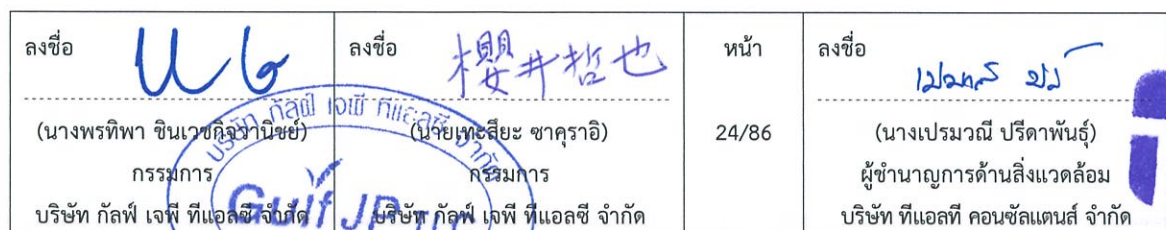 ลงชื่อ
(นางพรทิพา ชินเวชกิจวานิชย์)
กรรมการ
บริษัท กัลฟ์ เจพี ทีแอลซี จำกัด
ลงชื่อ
櫻井哲也
(นายเทะสึยะ ซาคุราอิ)
กรรมการ
บริษัท กัลฟ์ เจพี ทีแอลซี จำกัด
หน้า
24/86
ลงชื่อ
(นางเปรมวณี ปรีดาพันธุ์)
ผู้ชำนาญการด้านสิ่งแวดล้อม
บริษัท ทีแอลที คอนซัลแตนส์ จำกัด
บริษัท กัลฟ์ เจพี ทีแอลซี จำกัด
Gulf JP